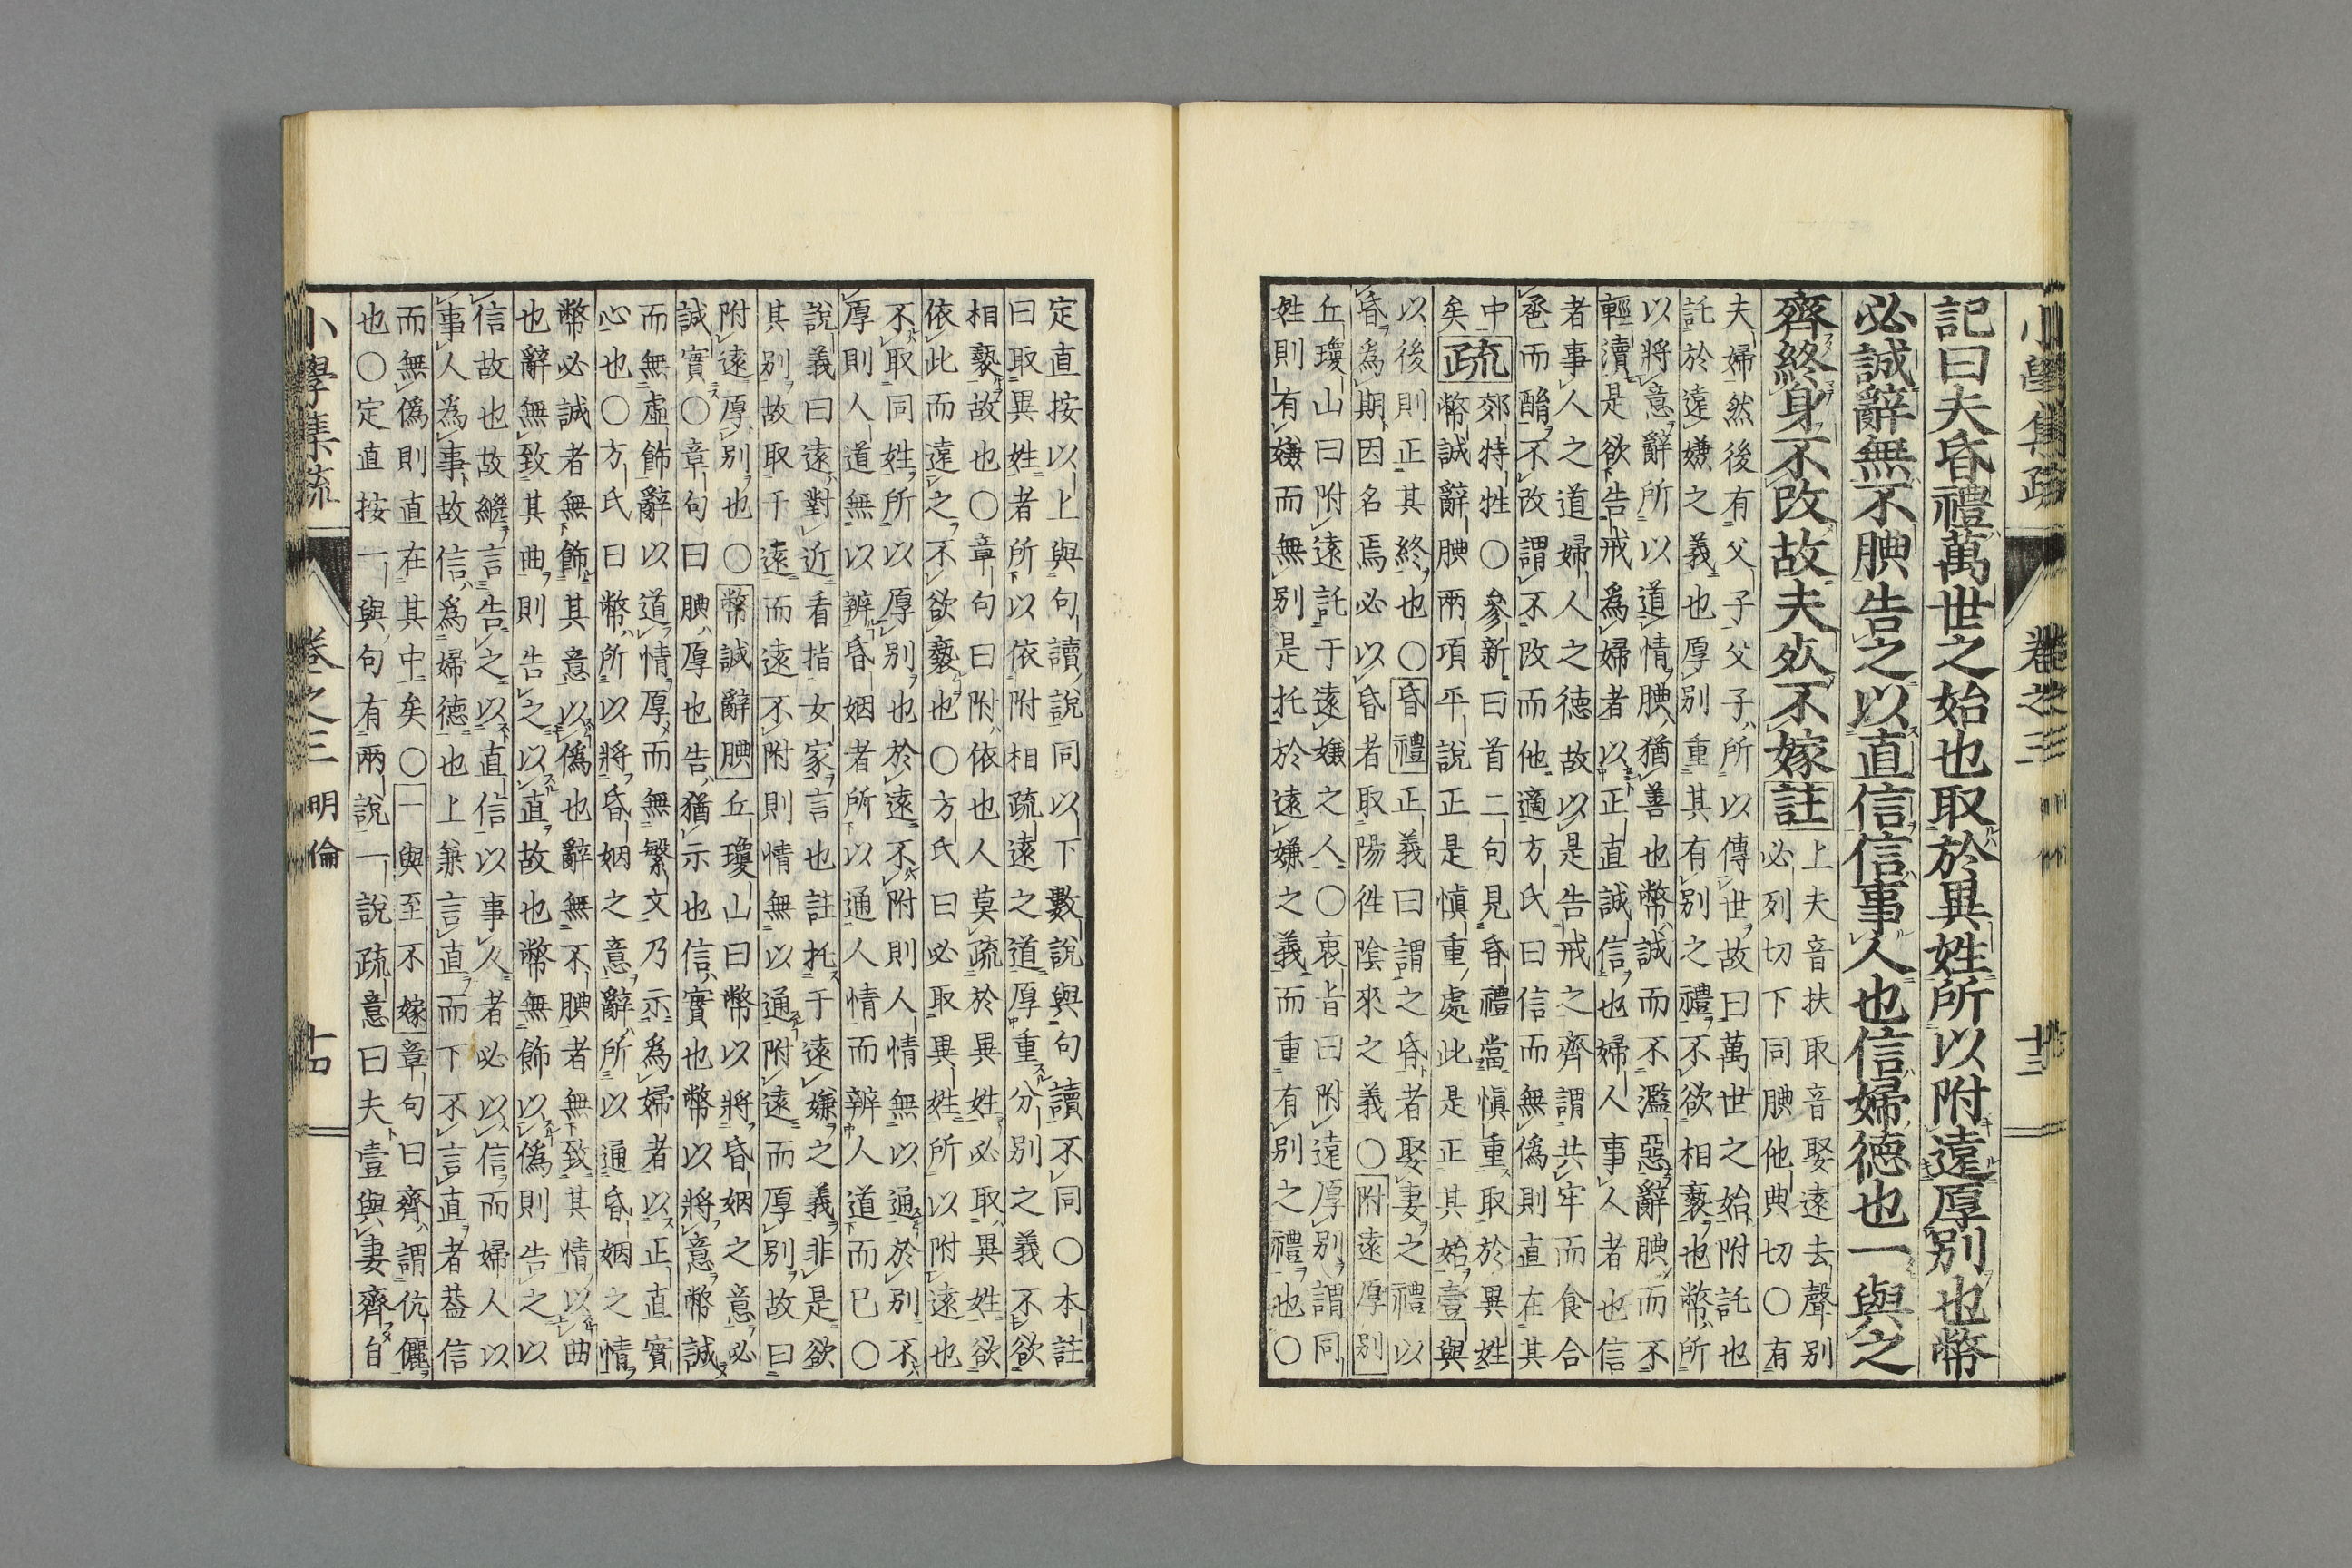 小學集疏 卷之三 十三
記曰夫昏禮萬世之始也取於異姓所以附遠厚別也幣
必誠辭無不腆告之以直信信事人也信婦德也一與之
齊終身不改故夫死不嫁註
上夫音扶取音娶遠去聲別
必列切下同腆他典切○有
夫婦然後有父子父子所以傳世故曰萬世之始附託也
託於遠嫌之義也厚別重其有別之禮不欲相褻也幣所
以將意辭所以道情腆猶善也幣誠而不濫惡辭腆而不
輕瀆是欲告戒爲婦者以正直誠信也婦人事人者也信
者事人之道婦人之德故以是告戒之齊謂共牢而食合
巹而酳不改謂不改而他適方氏曰信而無偽則直在其
中郊特牲○參新曰首二句見昏禮當愼重取於異姓
矣疏幣誠辭腆兩項平說正是愼重處此是正其始壹與
以後則正其終也○昏禮正義曰謂之昏者娶妻之禮以
昏爲期因名焉必以昏者取陽徃陰來之義○附遠厚別
丘瓊山曰附遠託于遠嫌之人○衷旨曰附遠厚別謂同
姓則有嫌而無別是托於遠嫌之義而重有別之禮也○
定直按以上與句讀說同以下數說與句讀不同○本註
曰取異姓者所以依附相疏遠之道厚重分別之義不欲
相褻故也○章句曰附依也人莫疏於異姓必取異姓欲
依此而遠之不欲褻也○方氏曰必取異姓所以附遠也
不取同姓所以厚別也於遠不附則人情無以通於別不
厚則人道無以辨昏姻者所以通人情而辨人道而已○
說義曰遠對近看指女家言也註托于遠嫌之義非是欲
其別故取于遠而遠不附則情無以通附遠而厚別故曰
附遠厚別也○幣誠辭腆丘瓊山曰幣以將昏姻之意必
誠實○章句曰腆厚也告猶示也信實也幣以將意幣誠
而無虛飾辭以道情厚而無繁文乃示爲婦者以正直實
心也○方氏曰幣所以將昏姻之意辭所以通昏姻之情
幣必誠者無飾其意以偽也辭無不腆者無致其情以曲
也辭無致其曲則告之以直故也幣無飾以偽則告之以
信故也故繼言告之以直信以事人者必以信而婦人以
事人為事故信爲婦德也上兼言直而下不言直者葢信
而無偽則直在其中矣○一與至不嫁章句曰齊謂伉儷
也○定直按一與句有兩說一說疏意曰夫壹與妻齊自
小學集疏 卷之三 明倫 十四